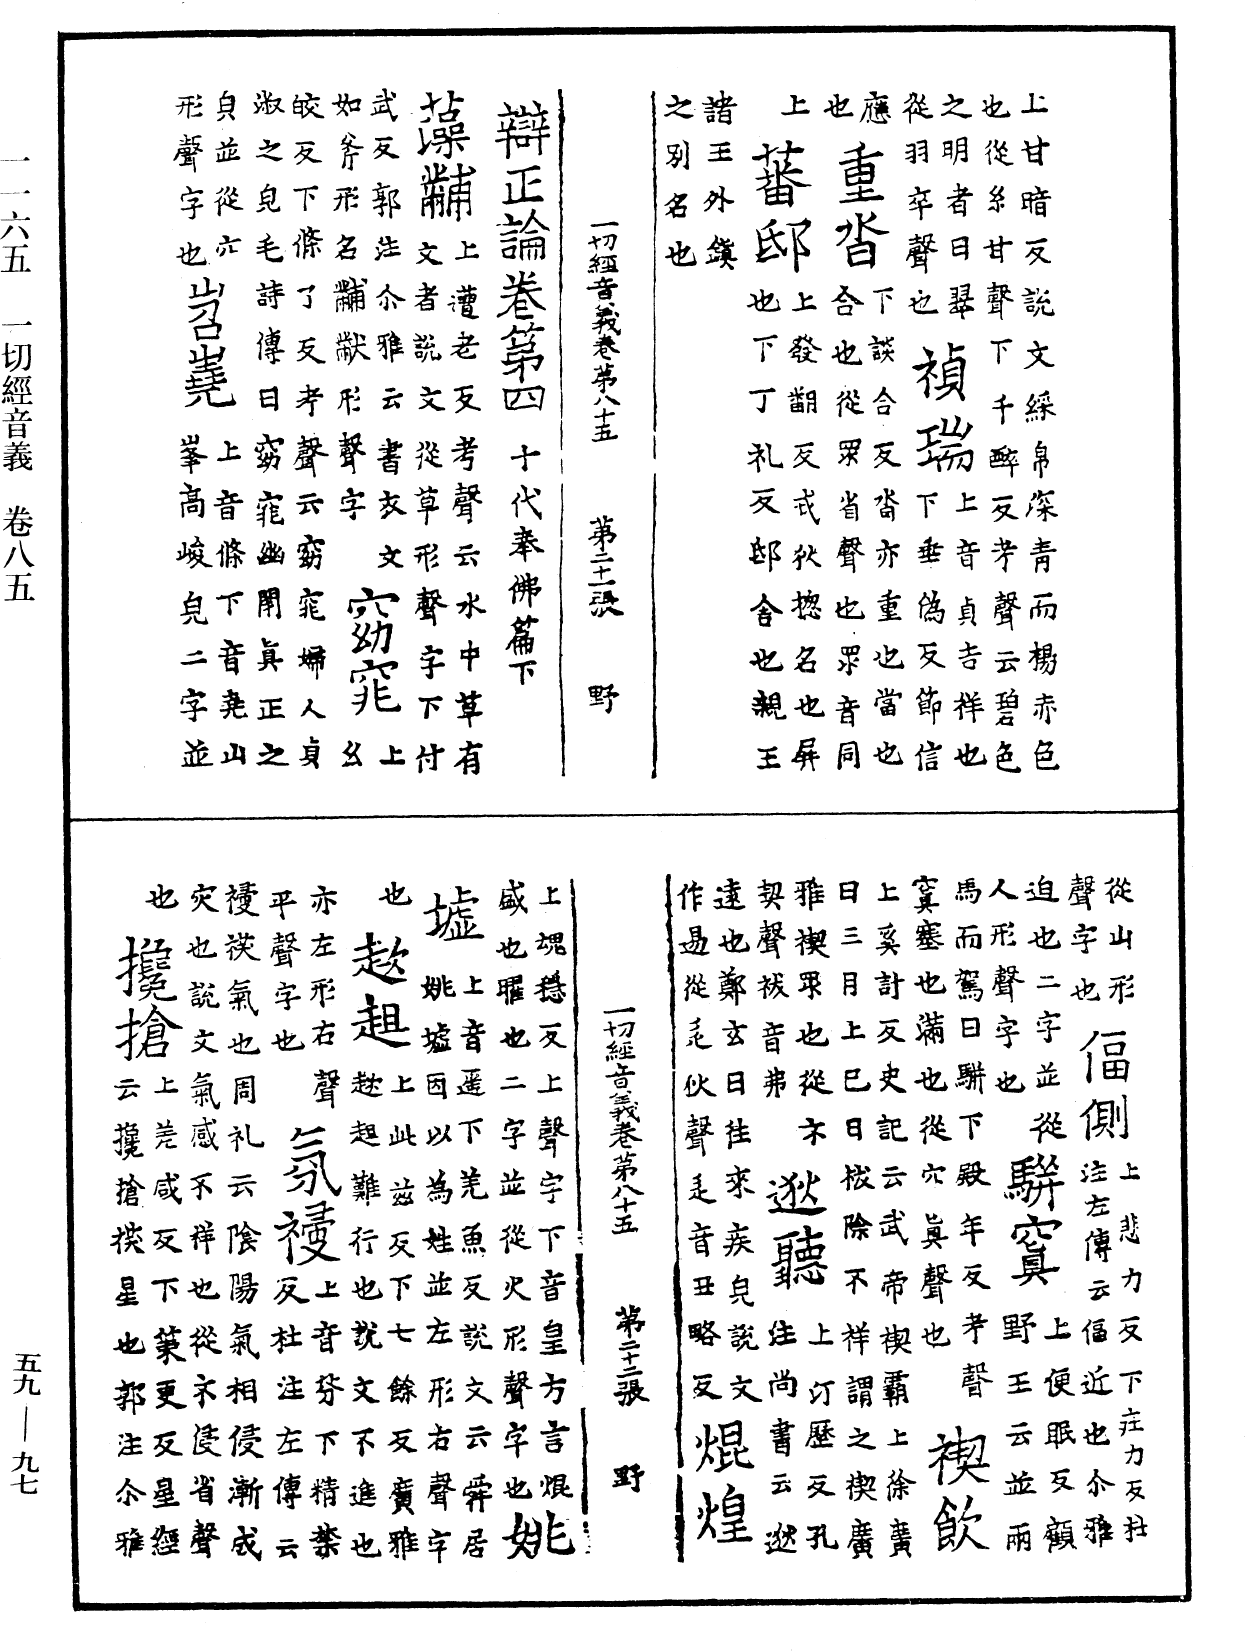 上甘暗反說文綵帛深青而楊赤色
也從糸甘聲下千醉反考聲云碧色
之明者曰翠
從羽卒聲也 禎瑞 上音貞吉祥也
下垂偽反節信
應
也 重沓 下談合反沓亦重也當也
合也從眾省聲也眾音同
上 蕃邸 上發翻反戎狄揔名也屏
也下丁礼反邸舍也親王
諸王外鎮
之別名也
一切經音義卷第八十五 第二十一張 野
辯正論卷第四 十代奉佛篇下
藻黼 上遭老反考聲云水中草有
文者說文從草形聲字下付
武反郭注尒雅云書衣文
如斧形名黼黻形聲字 窈窕 上
幺
皎反下條了反考聲云窈窕婦人貞
淑之皃毛詩傳曰窈窕幽閑貞正之
皃並從穴
形聲字也 岧嶤 上音條下音堯山
峯高峻皃二字並
從山形
聲字也 偪側 上悲力反下疰力反杜
注左傳云偪近也尒雅
迫也二字並從
人形聲字也 駢窴 上便眠反顧
野王云並兩
馬而駕曰駢下殿年反考聲
窴塞也滿也從穴眞聲也 禊飲
上奚計反史記云武帝禊霸上徐廣
曰三月上巳日祓除不祥謂之禊廣
雅禊眾也從示
契聲祓音弗 逖聽 上汀歷反孔
注尚書云逖
遠也鄭玄曰往來疾皃說文
作逷從辵狄聲辵音丑略反 焜煌
上魂穩反上聲字下音皇方言焜
盛也曜也二字並從火形聲字也 姚
墟 上音遥下羌魚反說文云舜居
姚墟因以為姓並左形右聲字
也 趑趄 上此茲反下七餘反廣雅
趑趄難行也說文不進也
亦左形右聲
平聲字也 氛祲 上音芬下精禁
反杜注左傳云
祲祅氣也周礼云陰陽氣相侵漸成
灾也說文氣感不祥也從示侵省聲
也 攙搶 上差咸反下策更反星經
云攙搶祅星也郭注尒雅
一一六五 一切經音義 卷八五
五九——九七